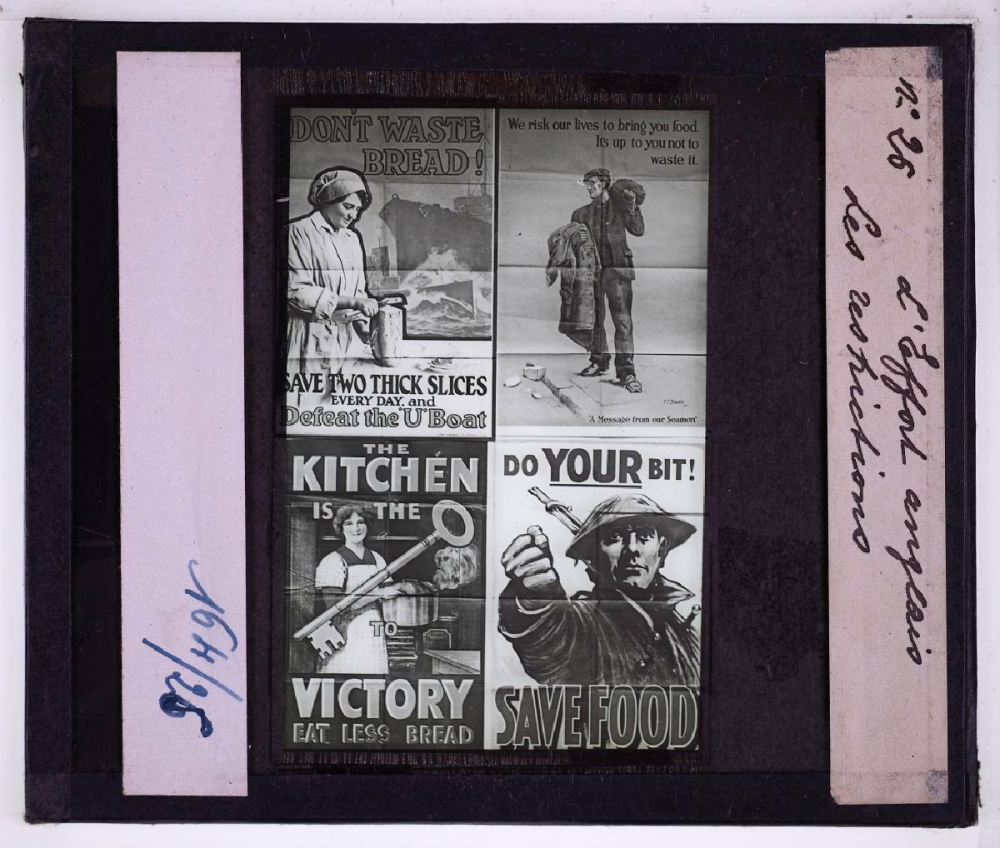 DON'T WASTE
BREAD!
SAVE TWO THICK SLICES
EVERY DAY, and
Defeat the 'U' Boat
We risk our lives to bring you food.
It's up to you not to
waste it.
"A Message from our Seamen"
THE
KITCHEN
IS THE
KEY
TO
VICTORY
EAT LESS BREAD
DO YOUR BIT!
SAVE FOOD
n° 25 L'Effort anglais
Les restrictions
164/25